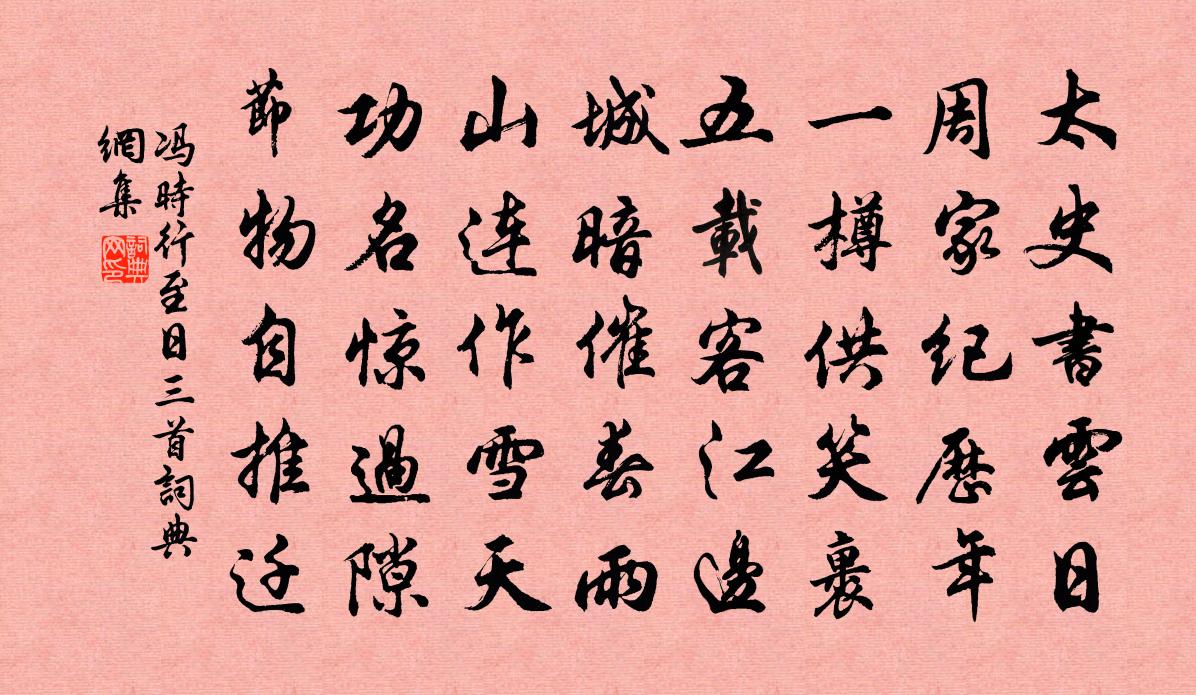 太史書雲日
周家紀歷年
一樽供笑裏
五載客江邊
城暗催春雨
山连作雪天
功名惊過隙
節物自推迁
冯時行至日三首詞典
網集
詞典网印